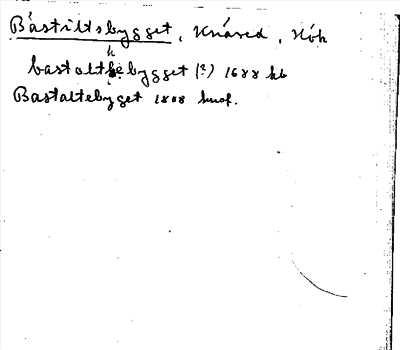 Båstiltsbygget, Knäred, Hök
bastaltebygget (?) 1688 kb
Bastaltebyget 1808